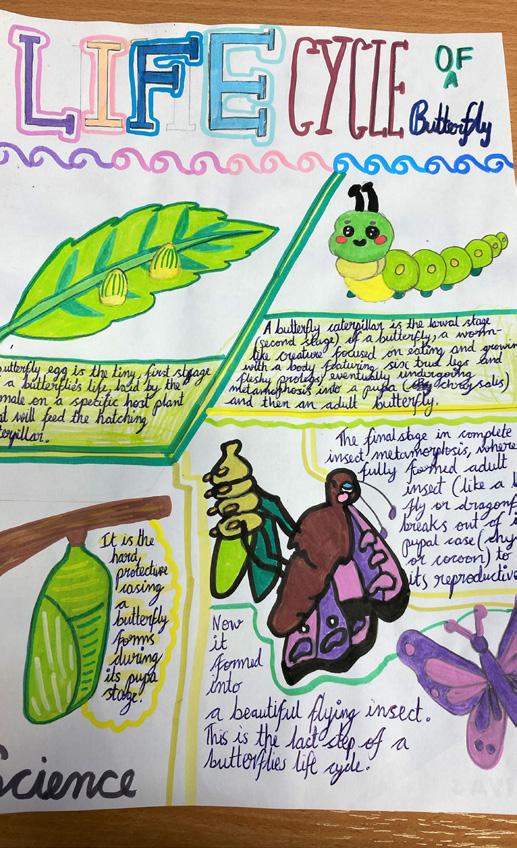 LIFE CYCLE OF
A
Butterfly
butterfly egg is the tiny, first stage
a butterflies life, laid by the
male on a specific host plant
at will feed the hatching
terpillar.
A butterfly caterpillar is the larval stage
(second stage) of a butterfly, a worm-
like creature focused on eating and growin
with a body featuring six true legs and
fleshy prolegs eventually undergoing
metamorphosis into a pupa (chrysalis)
and then an adult butterfly.
It is the
hard,
protective
casing
a
butterfly
forms
during
its pupa
stage.
The final stage in complete
insect metamorphosis, where
fully formed adult
insect (like a b
fly or dragonf
breaks out of i
pupal case (chry
or cocoon) to
its reproductive
Now
it
formed
into
a beautiful flying insect.
This is the last step of a
butterflies life cycle.
Science